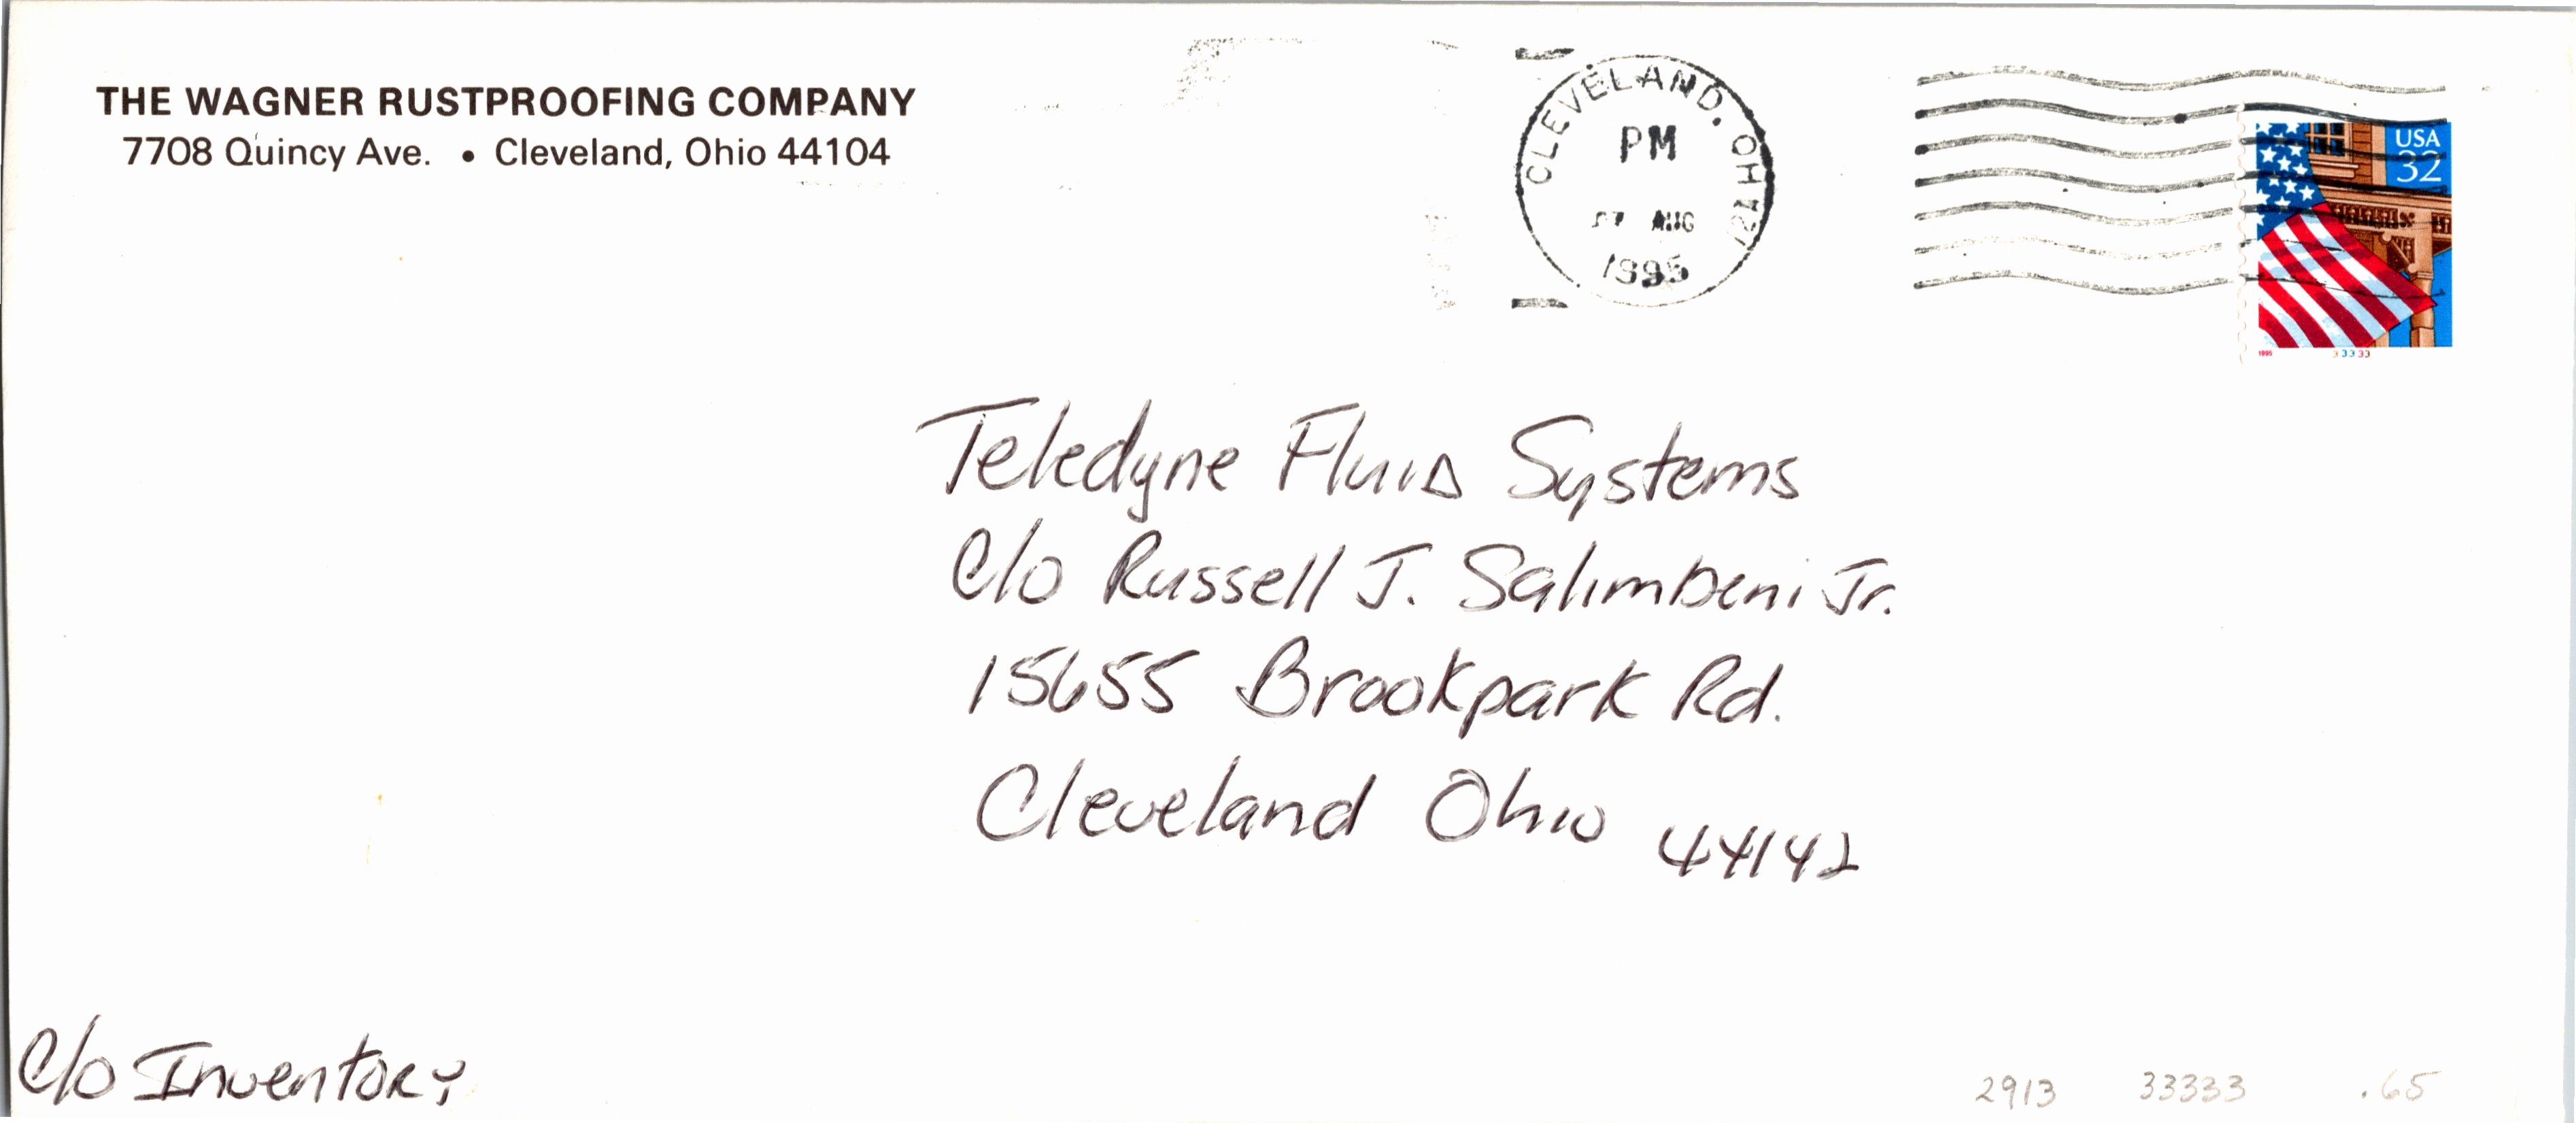 THE WAGNER RUSTPROOFING COMPANY
7708 Quincy Ave. • Cleveland, Ohio 44104
CLEVELAND, OH
PM
AUG
1995
USA
32
1995
33333
Teledyne Fluid Systems
C/o Russell J. Salimbeni Jr.
15655 Brookpark Rd.
Cleveland Ohio 44142
C/o Inventory
2913 33333 .65